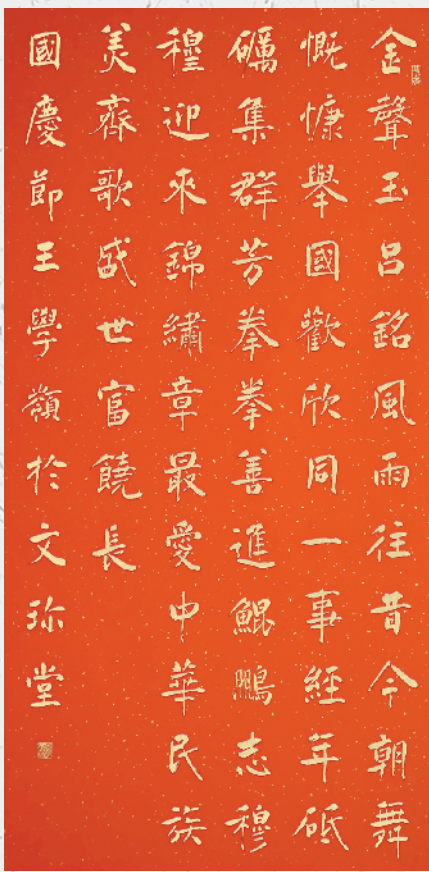 金聲玉呂銘風雨往昔今朝舞
慨慷舉國歡欣同一事經年砥
礪集群芳拳拳善進鯤鵬志穆
穆迎來錦繡章最愛中華民族
美齊歌盛世富饒長
國慶節王學嶺於文弥堂